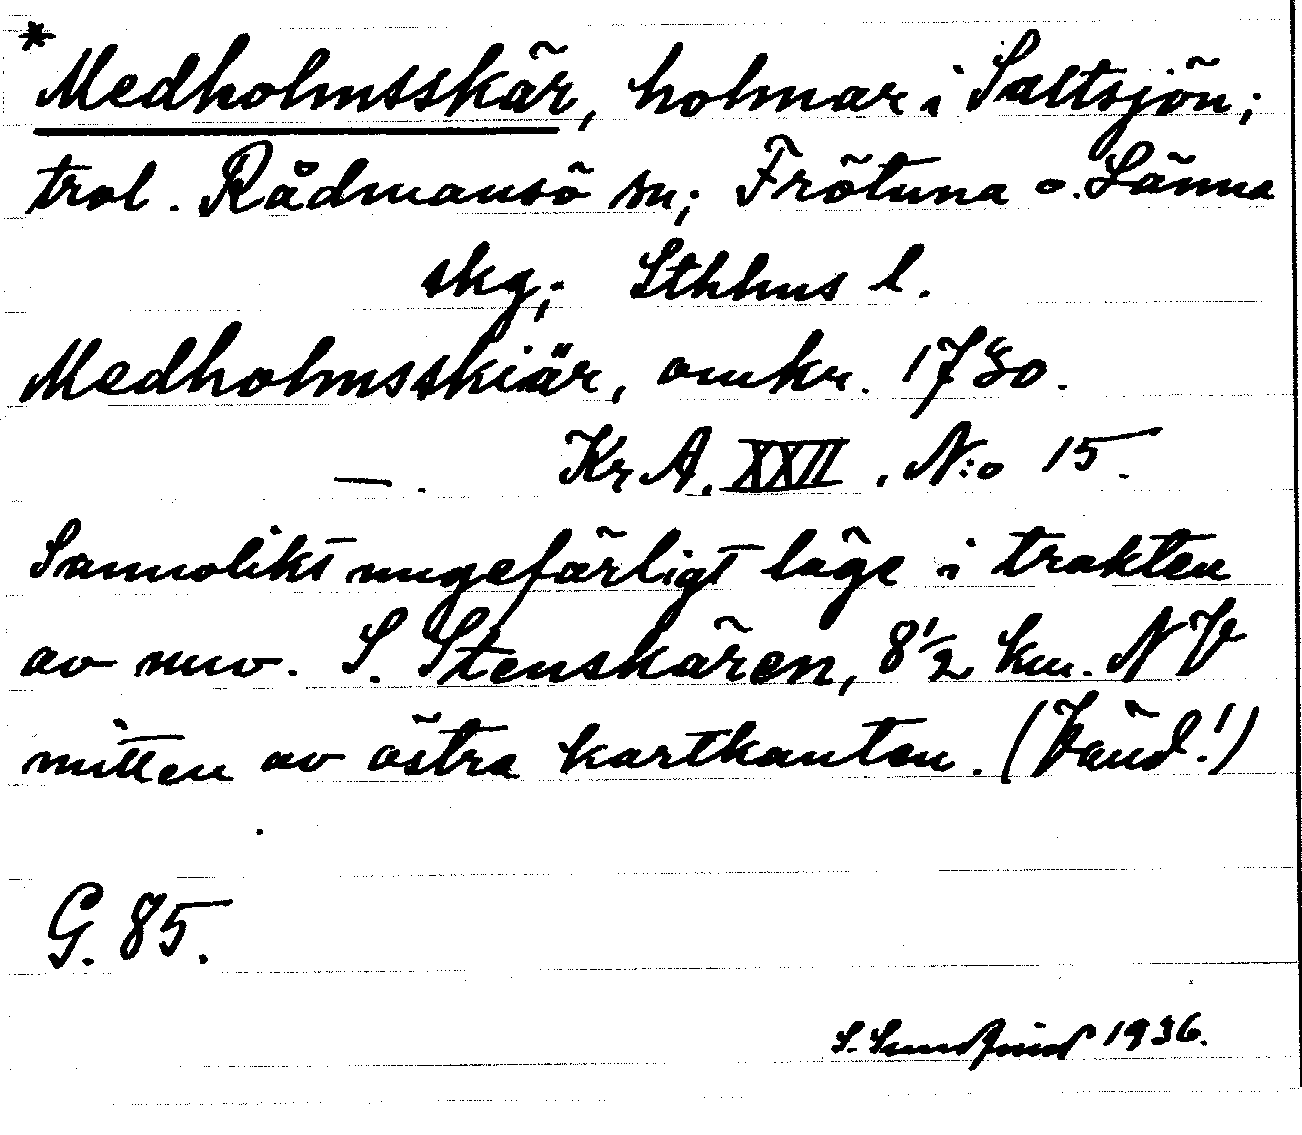 *
Medholmsskär, holmar i Saltsjön;
trol. Rådmansö sn; Frötuna o. Länna
skg; Sthhus l.
Medholmsskiär, omkr. 1780.
— . Kr A. XXII. N:o 15.
Sannolikt ungefärligt läge i trakten
av nuv. S. Stenskären, 8½ km. NV
mitten av östra kartkanten. (Vänd!)
G. 85.
S. 1936.